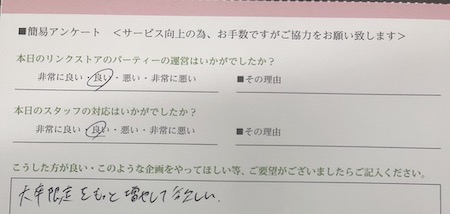 ■簡易アンケート ＜サービス向上の為、お手数ですがご協力をお願い致します＞
本日のリンクストアのパーティーの運営はいかがでしたか？
非常に良い・良い・悪い・非常に悪い ■その理由
本日のスタッフの対応はいかがでしたか？
非常に良い・良い・悪い・非常に悪い ■その理由
こうした方が良い・このような企画をやってほしい等、ご要望がございましたらご記入ください。
大卒限定をもっと増やして欲しい。